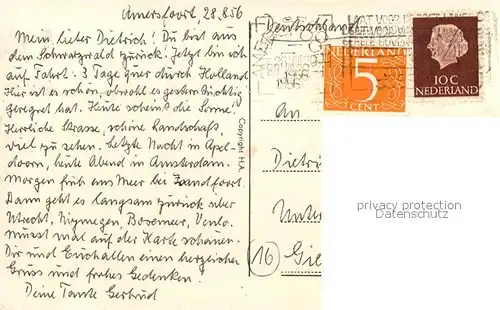 Amersfoort, 28.8.56
Mein lieber Dietrich! Du bist aus
dem Schwarzwald zurück. Jetzt bin ich
auf Fahrt. 3 Tage quer durch Holland
Hier ist es schön, obwohl es gestern tüchtig
geregnet hat. Heute scheint die Sonne!
Herrliche Strasse, schöne Landschaft,
viel zu sehen. Letzte Nacht in Apel-
doorn, heute Abend in Amsterdam.
Morgen früh ans Meer bei Zandfoort.
Dann geht es langsam zurück über
Utrecht, Nijmegen, Venlo.
Musst mal auf der Karte schauen.
Dir und Euch allen einen herzlichen
Gruss und frohes Gedenken.
Deine Tante Gertrud
Copyright H.A.
Deutschland
NEDERLAND
5
CENT
10C
NEDERLAND
An
Dietri
Unter
(16) Gie
privacy protection
Datenschutz